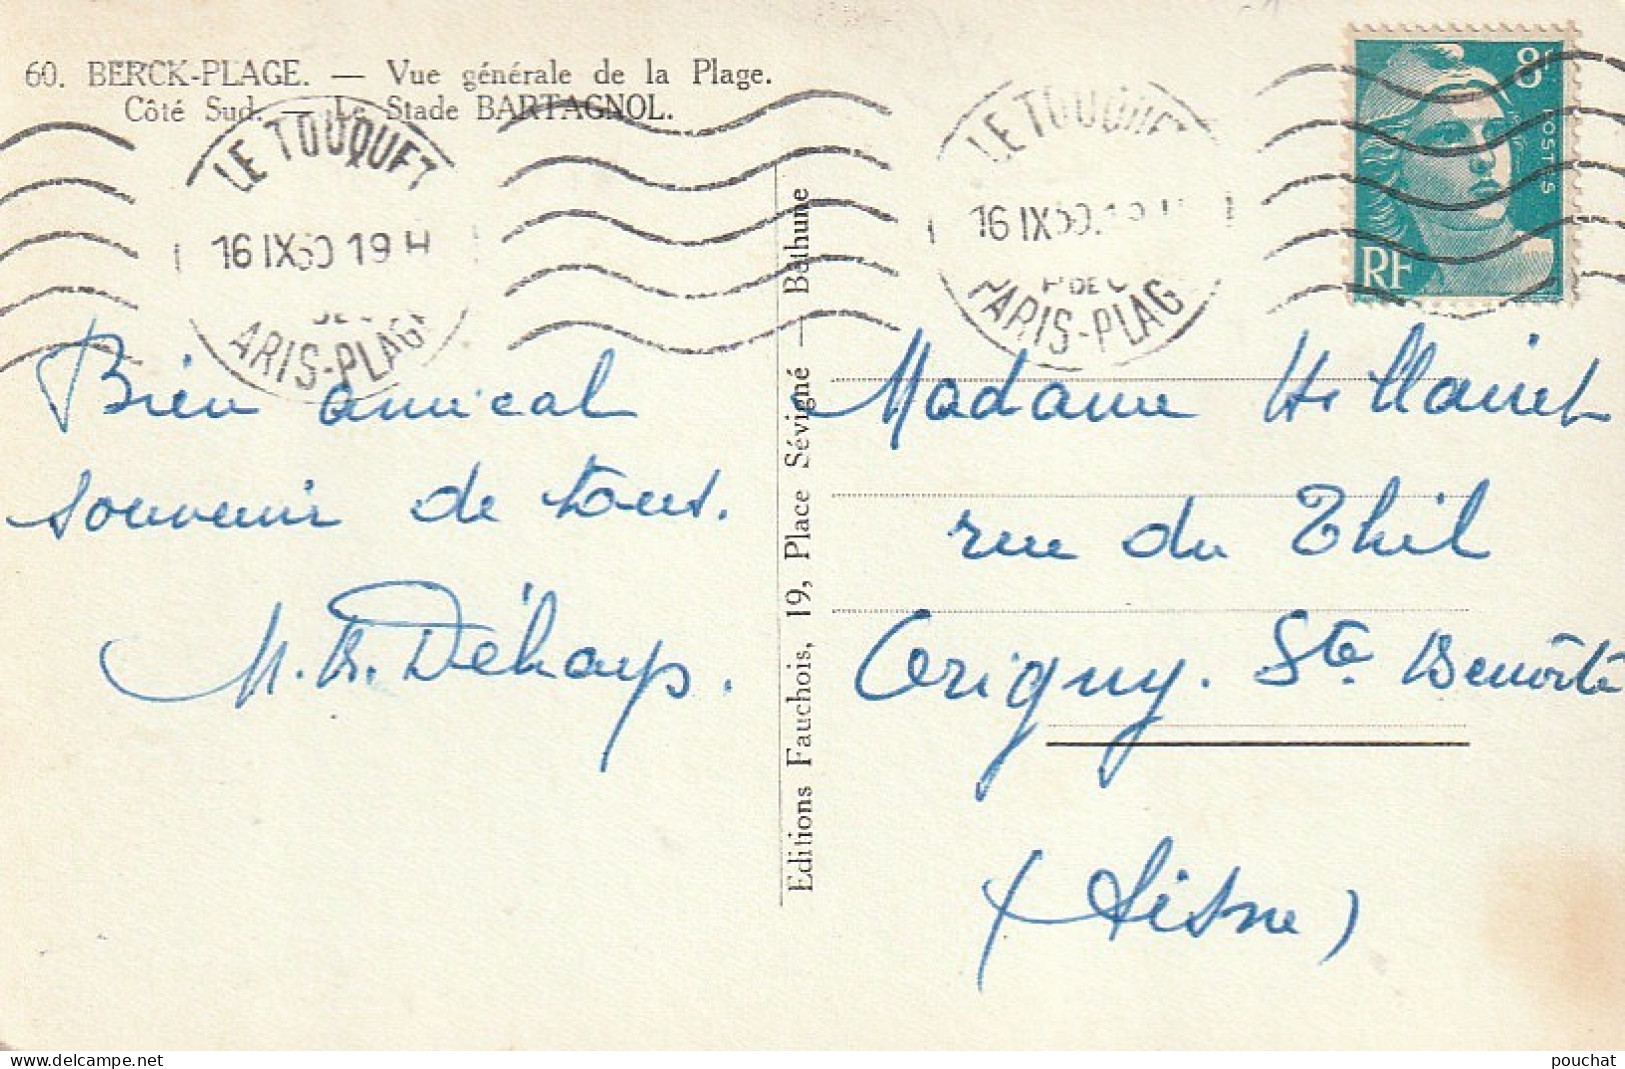 60. BERCK-PLAGE. — Vue générale de la Plage.
Côté Sud. — Le Stade BARTAGNOL.
LE TOUQUET
16 IX 50 19 H
ARIS-PLAG
LE TOUQUE
16 IX 50
P. DE C
PARIS-PLAG
8F
POSTES
RF
Bien amical
souvenir de tous.
Editions Fauchois, 19, Place Sévigné — Béthune
Madame
rue du Thil
Origny. Ste Benoîte
(Aisne)
delcampe.net
pouchat